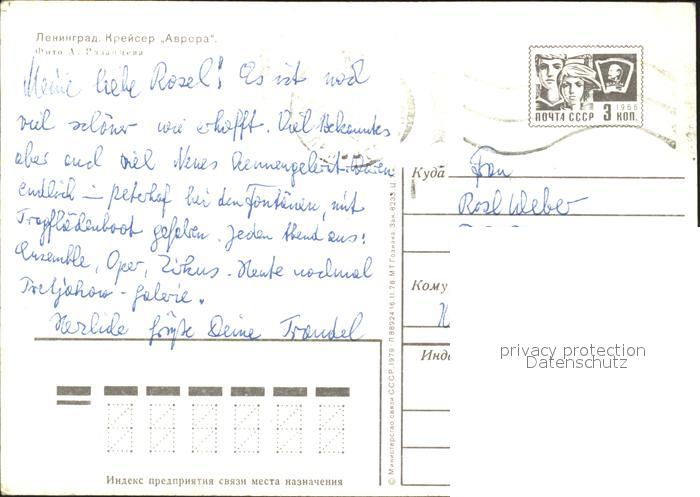 Ленинград. Крейсер „Аврора“.
Фото А. Рязанцева
Meine liebe Rosel! Es ist noch
viel schöner wie erhofft. Viel Bekanntes
aber auch viel Neues kennengelernt. Waren
endlich – Peterhof bei den Fontänen, mit
Tragflächenboot gefahren. Jeden Abend aus:
Ensemble, Oper, Zirkus. Heute nochmal
Tretjakow-Galerie.
Herzliche Grüße Deine Traudel
ПОЧТА СССР 3 КОП.
1966
Куда Frau
Rosl Weber
Кому
Инде
privacy protection
Datenschutz
© Министерство связи СССР, 1979
МТ Гознака. Зак.
Индекс предприятия связи места назначения